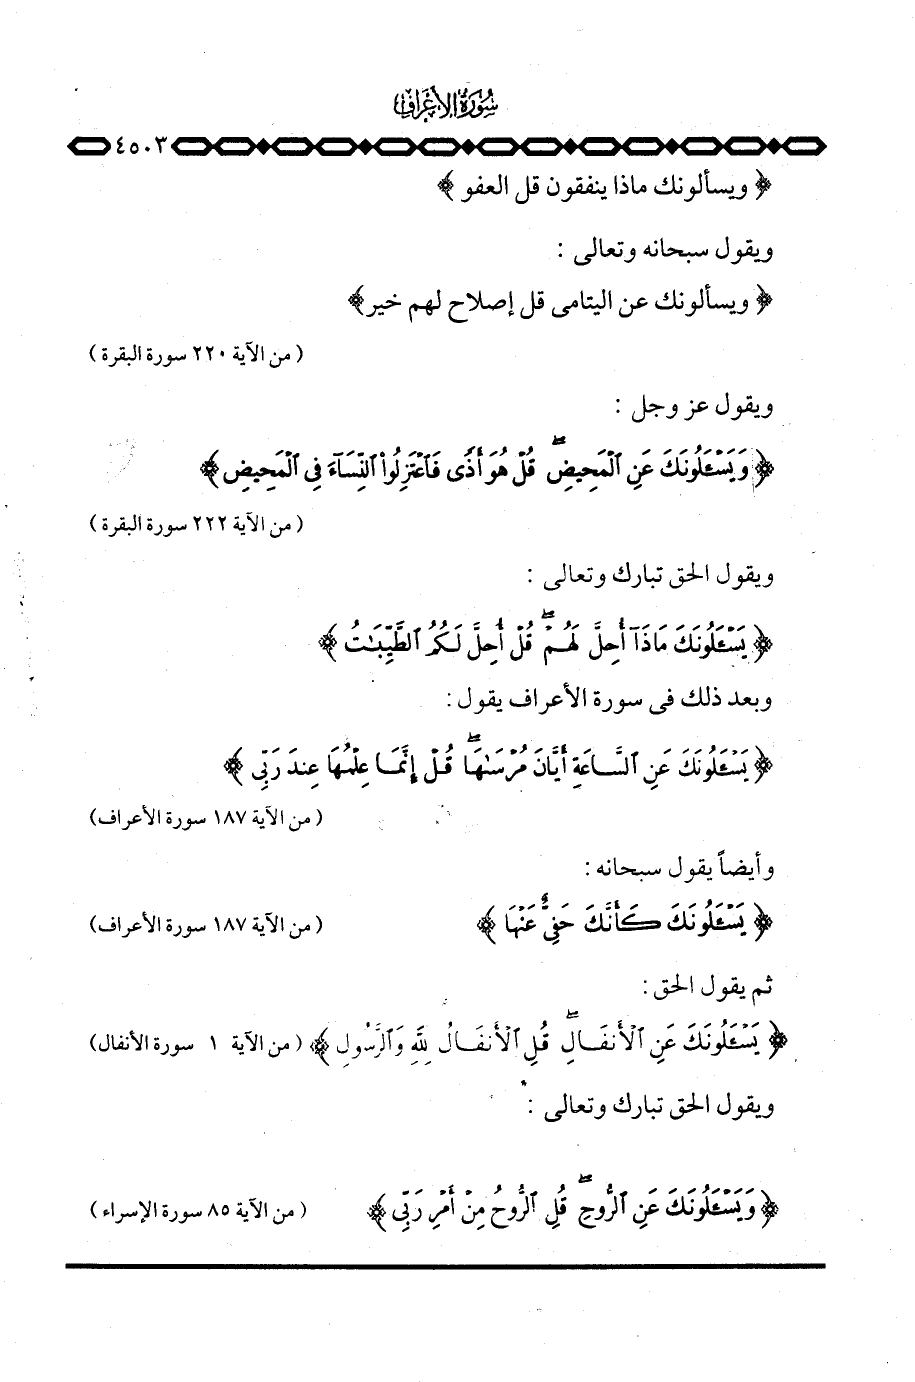 سُورَةُ الأَعْرَافِ
٤٥٠٣
﴿ ويسألونك ماذا ينفقون قل العفو ﴾
ويقول سبحانه وتعالى :
﴿ ويسألونك عن اليتامى قل إصلاح لهم خير ﴾
( من الآية ٢٢٠ سورة البقرة )
ويقول عز وجل :
﴿ وَيَسْـَٔلُونَكَ عَنِ ٱلْمَحِيضِ ۖ قُلْ هُوَ أَذًى فَٱعْتَزِلُوا۟ ٱلنِّسَآءَ فِى ٱلْمَحِيضِ ﴾
( من الآية ٢٢٢ سورة البقرة )
ويقول الحق تبارك وتعالى :
﴿ يَسْـَٔلُونَكَ مَاذَآ أُحِلَّ لَهُمْ ۖ قُلْ أُحِلَّ لَكُمُ ٱلطَّيِّبَـٰتُ ﴾
وبعد ذلك فى سورة الأعراف يقول :
﴿ يَسْـَٔلُونَكَ عَنِ ٱلسَّاعَةِ أَيَّانَ مُرْسَىٰهَا ۖ قُلْ إِنَّمَا عِلْمُهَا عِندَ رَبِّى ﴾
( من الآية ١٨٧ سورة الأعراف )
وأيضاً يقول سبحانه :
﴿ يَسْـَٔلُونَكَ كَأَنَّكَ حَفِىٌّ عَنْهَا ﴾ ( من الآية ١٨٧ سورة الأعراف )
ثم يقول الحق :
﴿ يَسْـَٔلُونَكَ عَنِ ٱلْأَنفَالِ ۖ قُلِ ٱلْأَنفَالُ لِلَّهِ وَٱلرَّسُولِ ﴾ ( من الآية ١ سورة الأنفال )
ويقول الحق تبارك وتعالى :
﴿ وَيَسْـَٔلُونَكَ عَنِ ٱلرُّوحِ ۖ قُلِ ٱلرُّوحُ مِنْ أَمْرِ رَبِّى ﴾ ( من الآية ٨٥ سورة الإسراء )